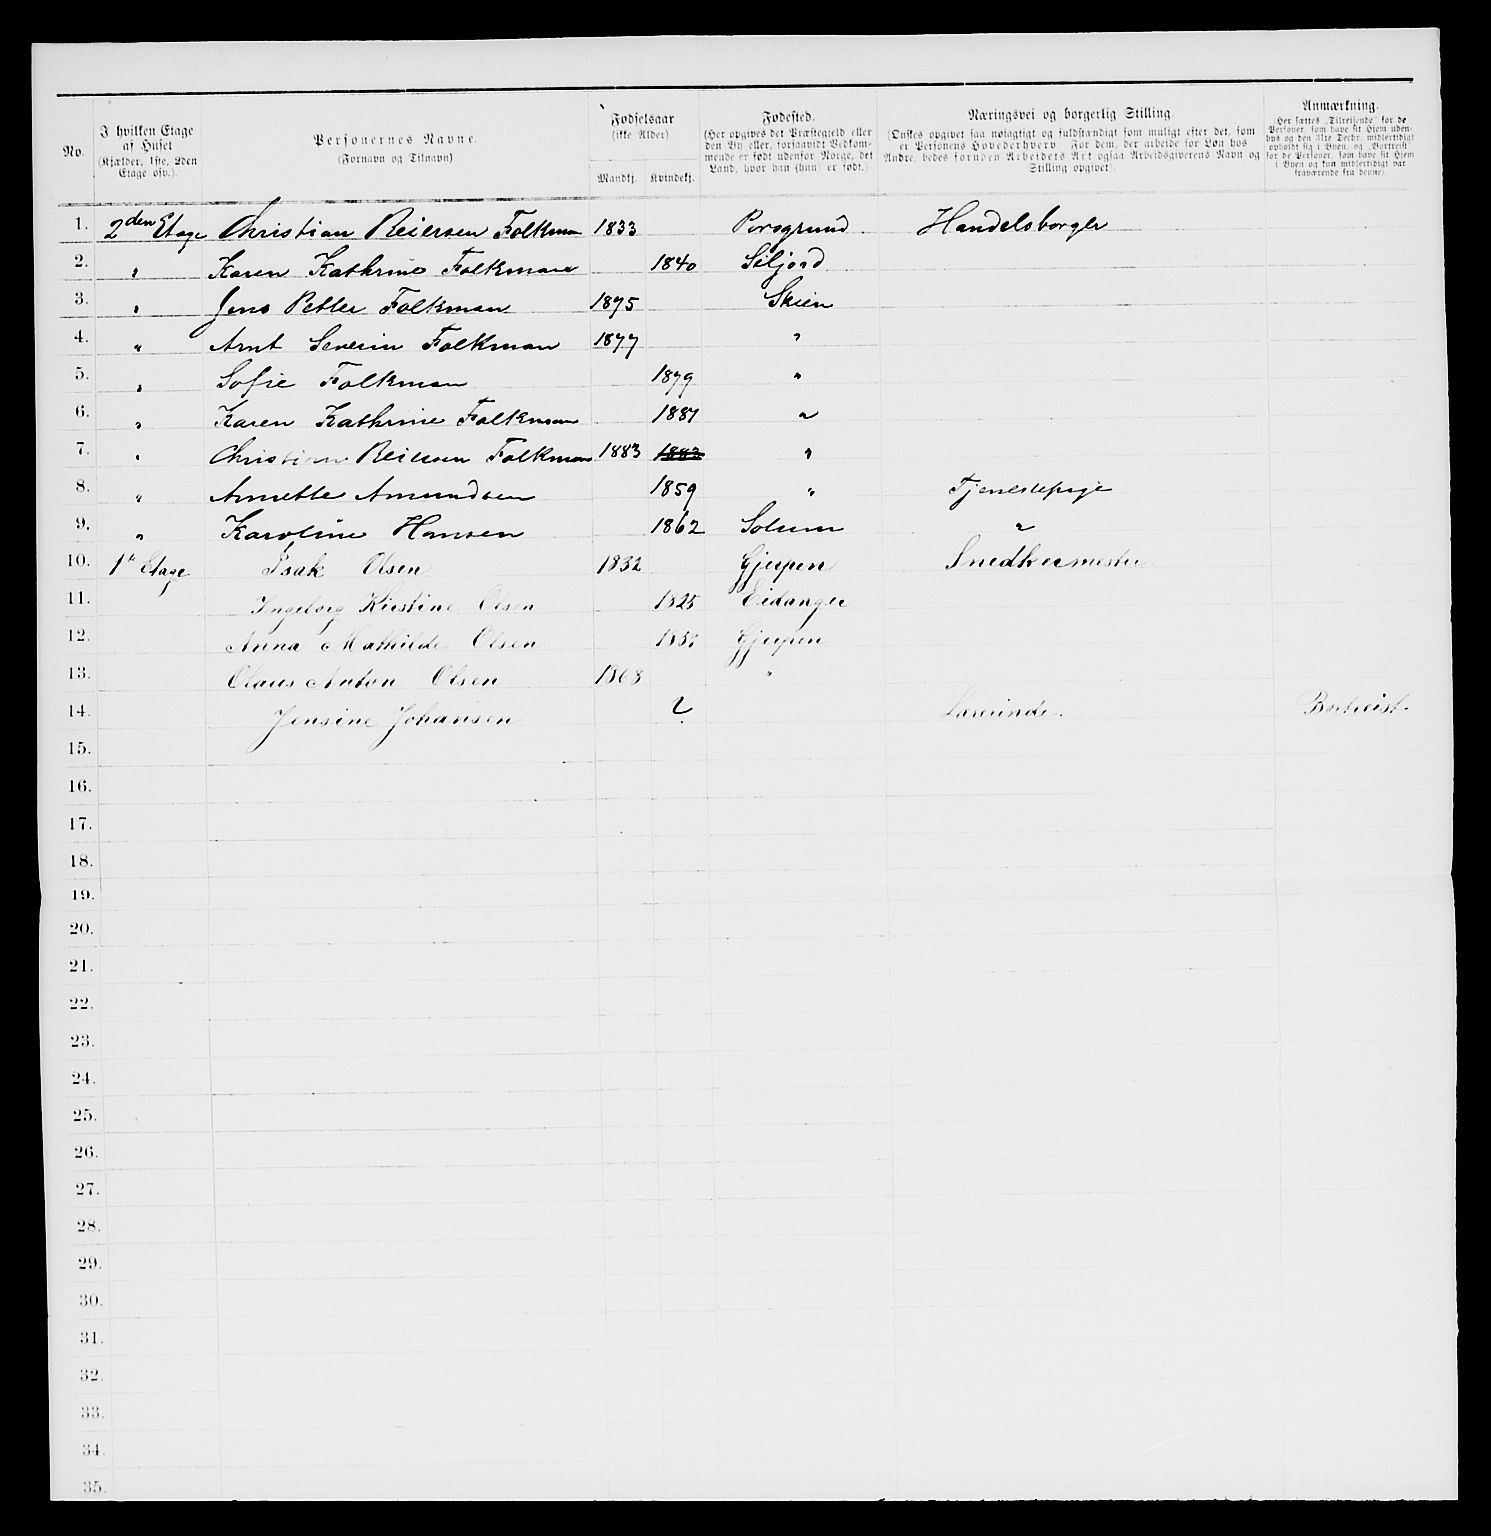 No.
I hvilken Etage
af Huset
(Kjælder, 1ste, 2den
Etage osv.).
Personernes Navne.
(Fornavn og Tilnavn)
Fødselsaar
(ikke Alder)
Mandkj. Kvindekj.
Fødested.
(Her opgives det Præstegjeld eller
den By eller, forsaavidt Vedkom-
mende er født udenfor Norge, det
Land, hvor han (hun) er født.)
Næringsvei og borgerlig Stilling
(Ønskes opgivet saa nøiagtigt og fuldstændigt som muligt efter det, som
er Personens Hovederhverv. For dem, der arbeide for Løn hos
Andre, bedes foruden Arbeidets Art ogsaa Arbeidsgiverens Navn og
Stilling opgivet).
Anmærkning.
(Her sættes „Tilreisende“ for de
Personer, som have sit Hjem uden-
bys og den 31te Decbr. midlertidigt
opholdt sig i Byen, og „Bortreist“
for de Personer, som have sit Hjem
i Byen og kun midlertidigt var
fraværende fra denne).
1. 2den Etage Christian Reiersen Folkman 1833 Porsgrund Handelsborger
2. " Karen Kathrine Folkman 1840 Siljord
3. " Jens Petter Folkman 1875 Skien
4. " Arnt Severin Folkman 1877 "
5. " Sofie Folkman 1879 "
6. " Karen Kathrine Folkman 1881 "
7. " Christian Reiersen Folkman 1883 1883 "
8. " Annette Amundsen 1859 " Tjenestepige
9. " Karoline Hansen 1862 Solum "
10. 1ste Etage Isak Olsen 1832 Gjerpen Snedkermester
11. Ingeborg Kirstine Olsen 1825 Eidanger
12. Anna Mathilde Olsen Gjerpen
13. Olaus Anton Olsen 1868 "
14. Jensine Johansen ? Lærerinde. Bortreist.
15.
16.
17.
18.
19.
20.
21.
22.
23.
24.
25.
26.
27.
28.
29.
30.
31.
32.
33.
34.
35.